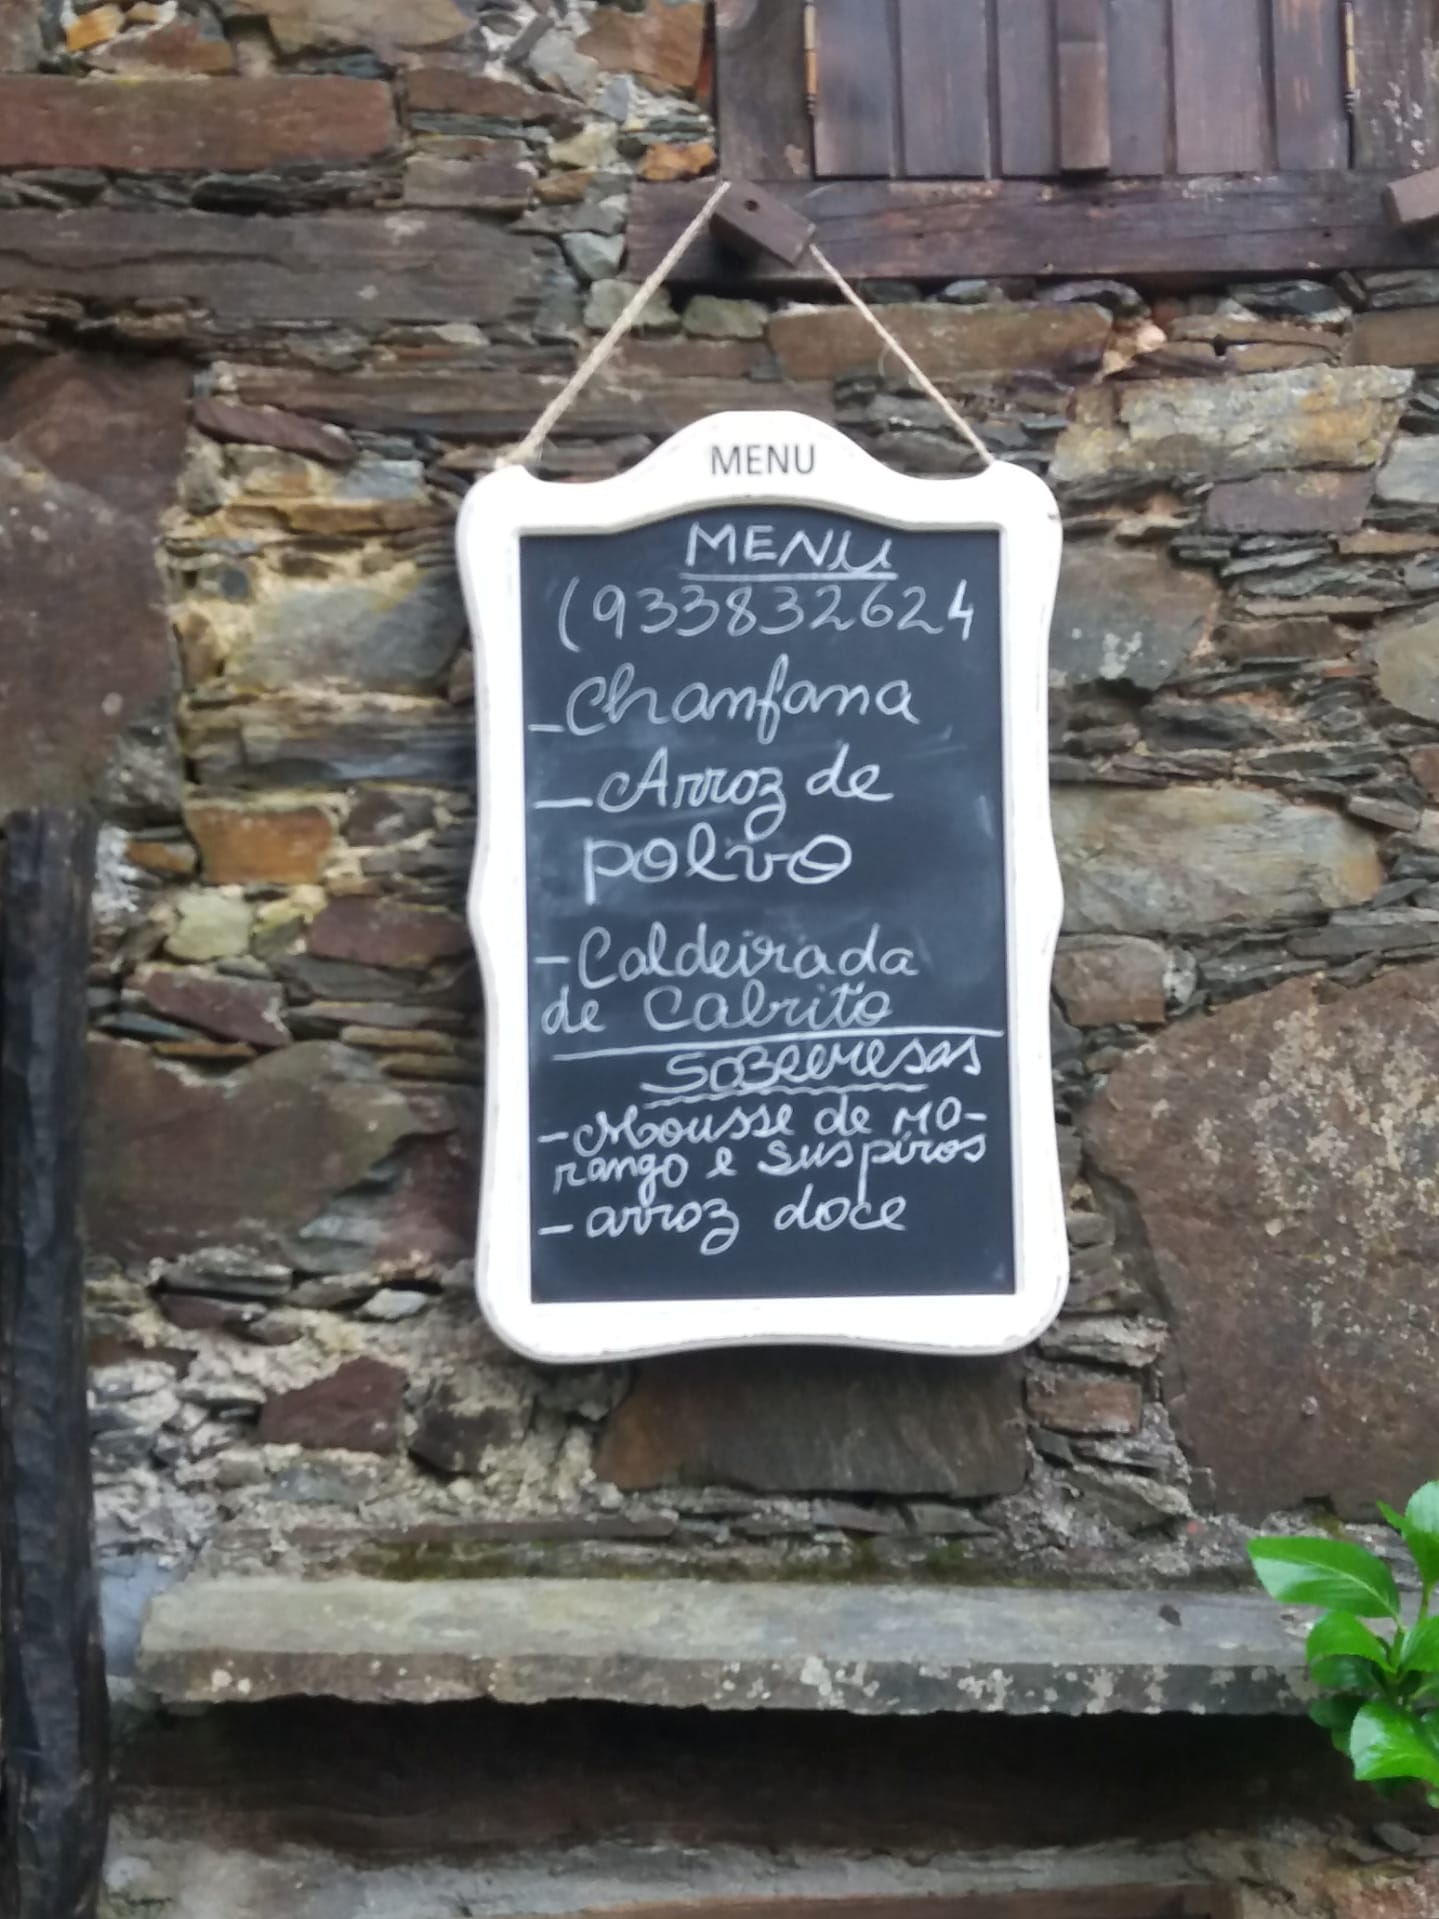 MENU
MENU
(933832624
- Chanfana
- Arroz de
polvo
- Caldeirada
de Cabrito
SOBREMESAS
- Mousse de MO-
rango e suspiros
- arroz doce